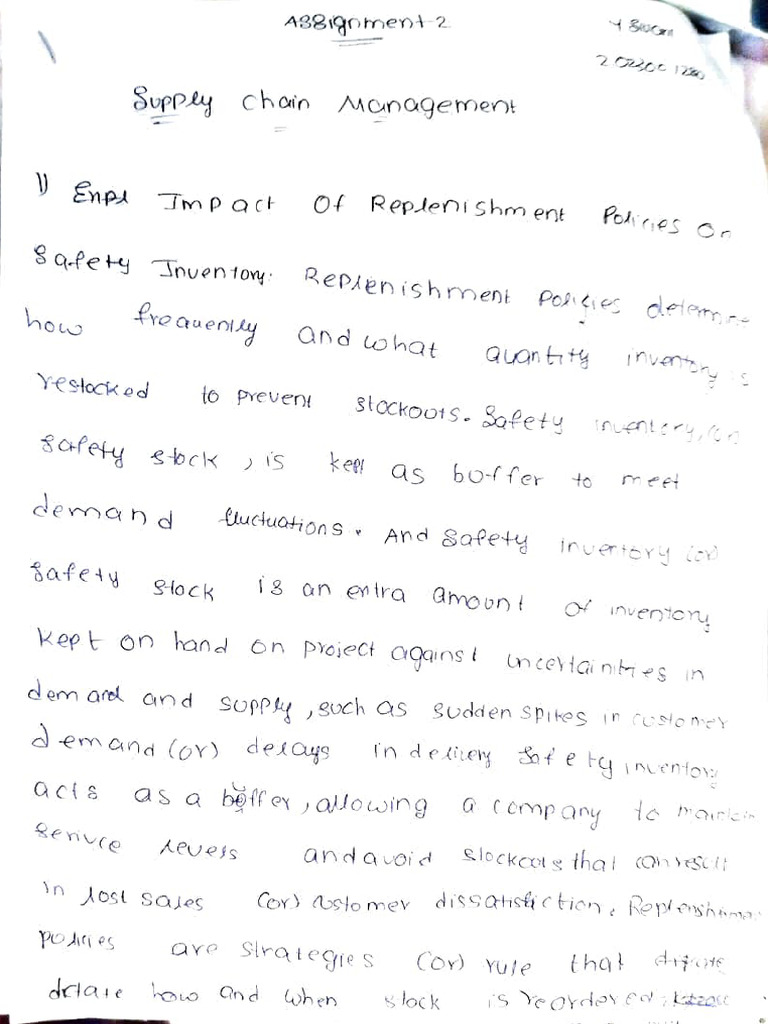 Assignment-2
Supply Chain Management
1) Impact Of Replenishment Policies On
Safety Inventory: Replenishment policies determine
how frequently and what quantity inventory is
restocked to prevent stockouts. Safety inventory, (or)
safety stock, is kept as buffer to meet
demand fluctuations. And safety inventory (or)
safety stock is an entra amount of inventory
kept on hand on project against uncertainities in
demand and supply, such as sudden spikes in customer
demand (or) delays in delivery safety inventory
acts as a buffer, allowing a company to maintain
serivce levels and avoid stockouts that can result
in lost sales (or) customer dissatisfiction. Replenishment
policies are strategies (or) rule that
how and when stock is reordered.